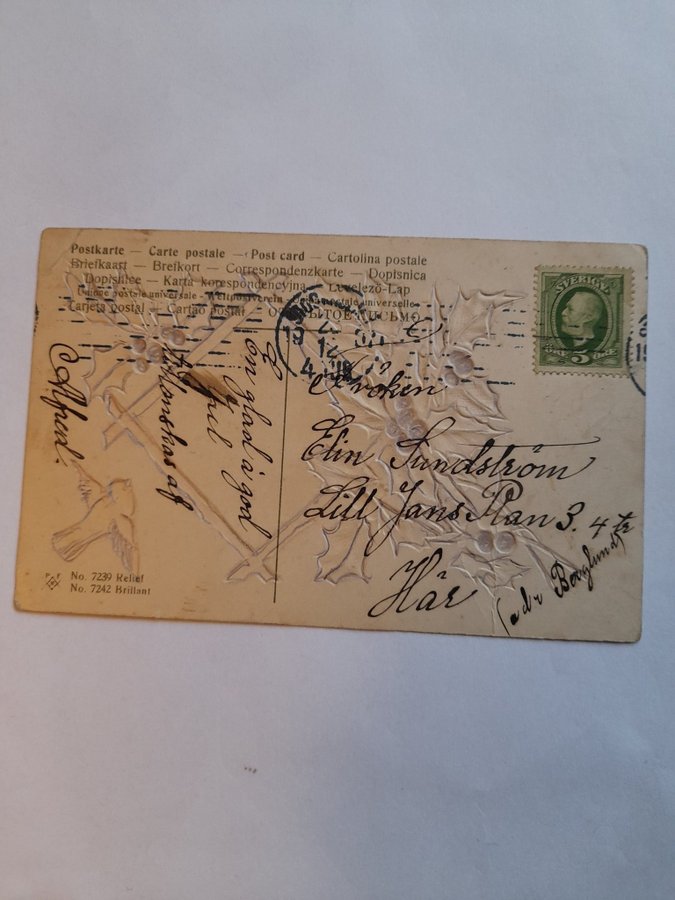 Postkarte — Carte postale — Post card — Cartolina postale
Briefkaart — Brefkort — Correspondenzkarte — Dopisnica
Dopisnice — Karta korespondencyjna — Levelező-Lap
Union postale universelle — Weltpostverein — postale universelle
Tarjeta postal — Cartao postal — ОТКРЫТОЕ ПИСЬМО
SVERIGE
FEM 5 ÖRE
19
12
4
Fröken
Elin Sundström
Lill Jans Plan 3. 4 tr
Här
(adr Berglund)
En glad & god
Jul
tillönskas af
Alfred.
No. 7239 Relief
No. 7242 Brillant